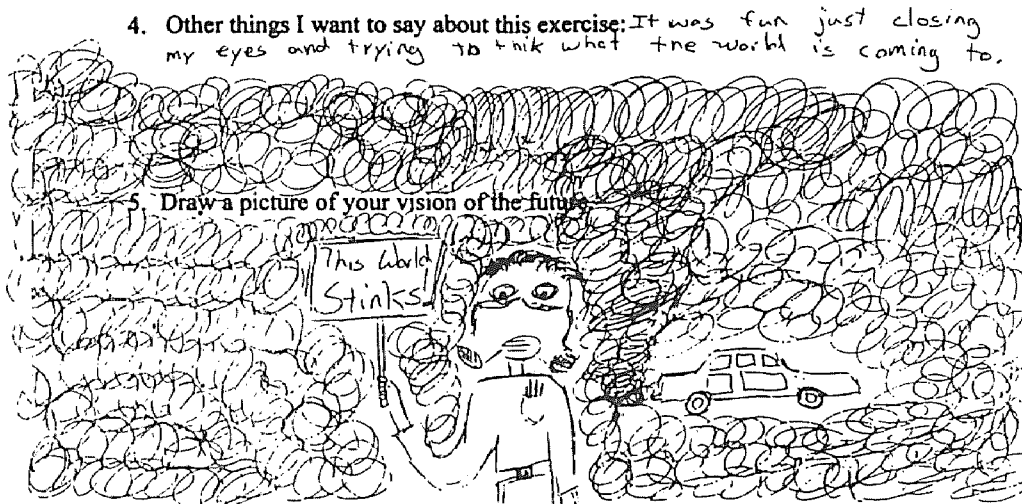 4. Other things I want to say about this exercise: It was fun just closing
my eyes and trying to thik what the world is coming to.
5. Draw a picture of your vision of the future
This World
Stinks